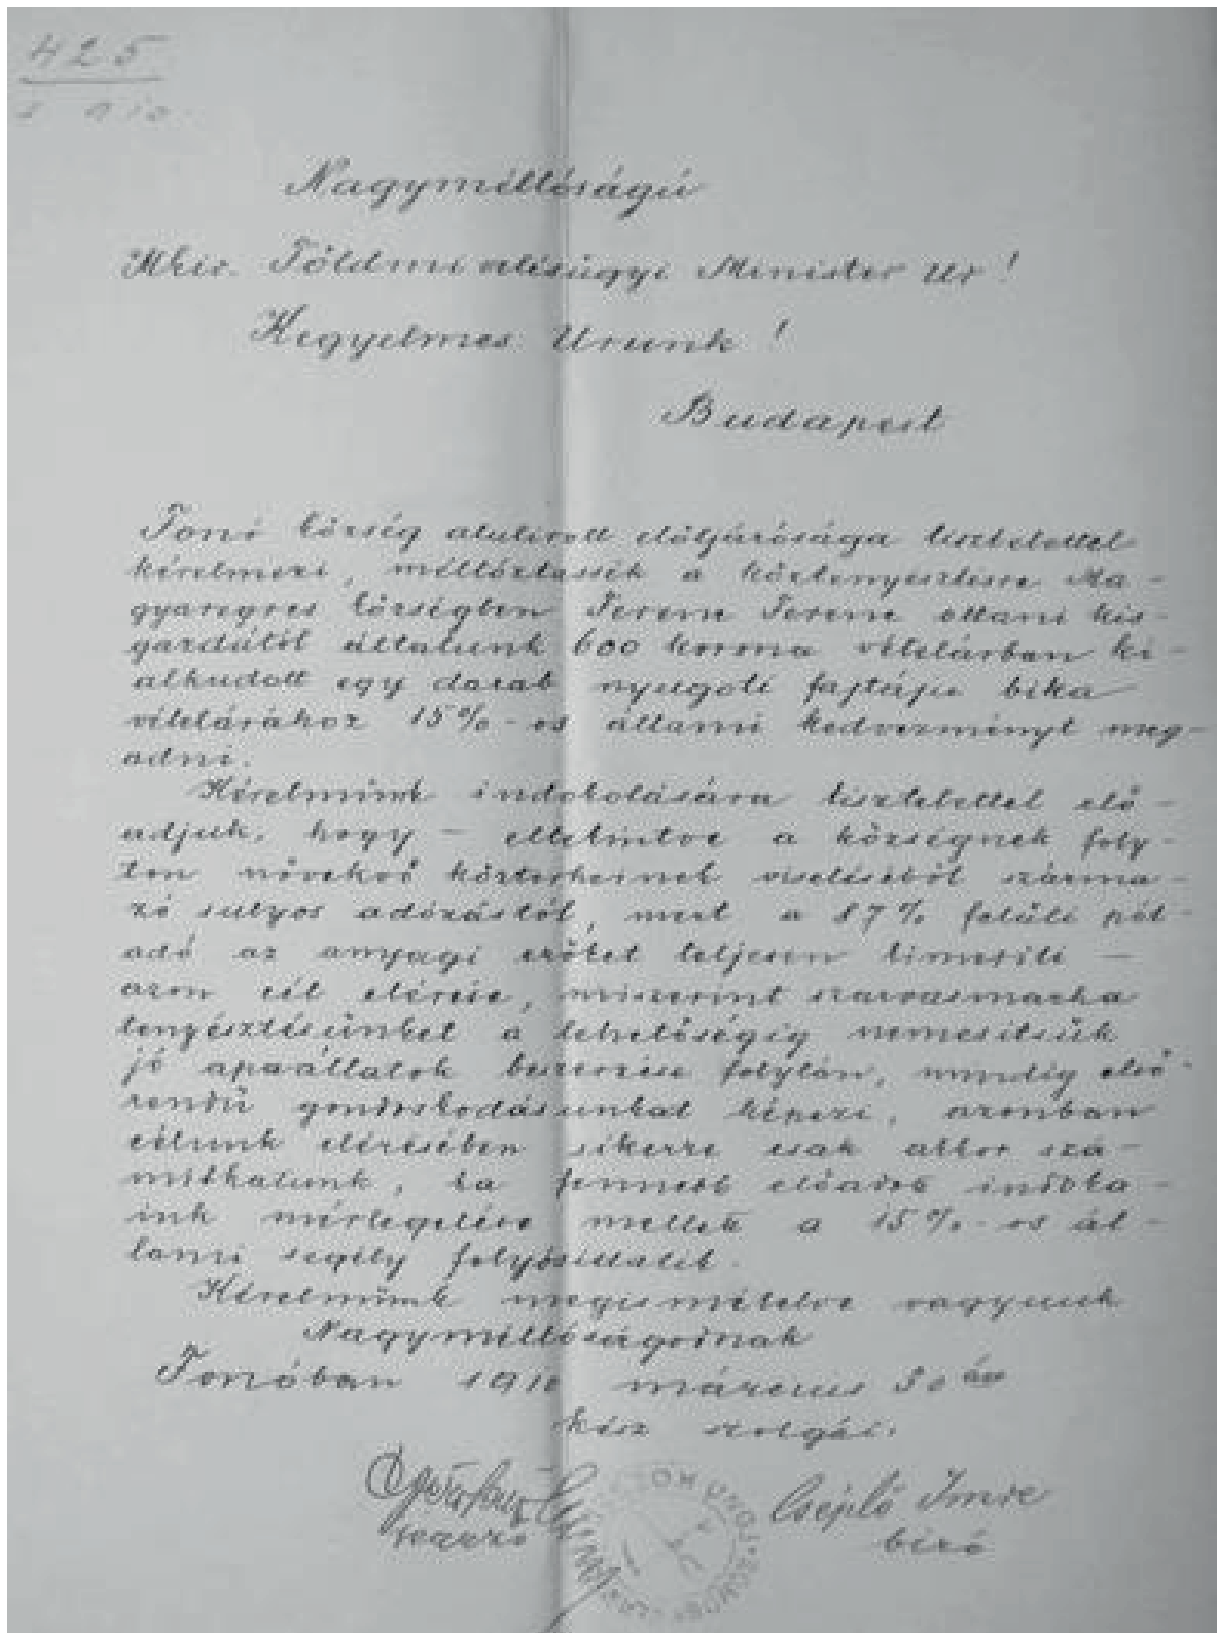 425
Nagyméltóságú
Mkir. Földmivelésügyi Minister Ur!
Kegyelmes Urunk!
Budapest
Fonó község alulirott elöljárósága tisztelettel
kérelmezi, méltóztassék a köztenyésztésre Ma-
gyaregres községben Ferenc Ferenc ottani kis-
gazdától általunk 600 korona vételárban ki-
alkudott egy darab nyugoti fajtáju bika
vételárához 15%-os állami kedvezményt meg-
adni.
Kérelmünk indokolására tisztelettel elő-
adjuk, hogy – eltekintve a községnek foly-
ton növekvő közterheinek viseléséből szárma-
zó sulyos adózástól, mert a 87% felüli pót-
adó az anyagi erőket teljesen kimeriti –
azon cél elérése, miszerint szarvasmarha
tenyésztésünket a lehetőségig nemesitsük
jó apaállatok beszerzése folytán, mindig első-
rendű gondoskodásunkat képezi, azonban
célunk elérésében sikerre csak akkor szá-
mithatunk, ha fennebb előadott indoka-
ink mérlegelése mellett a 15%-os ál-
lami segély folyósittatik.
Kérelmünk megismételve vagyunk
Nagyméltóságodnak
Fonóban 1910 március 30 án
kész szolgái:
Cséplő Imre
biró